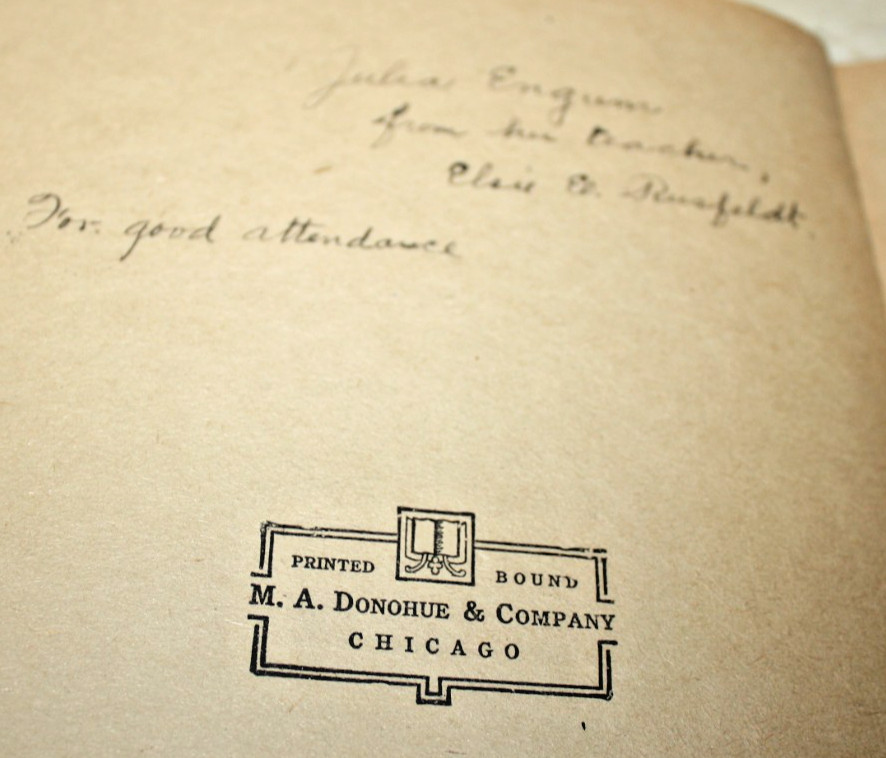 Julia Engum
from her teacher,
Elsie E.
For good attendance
PRINTED BOUND
M. A. DONOHUE & COMPANY
CHICAGO